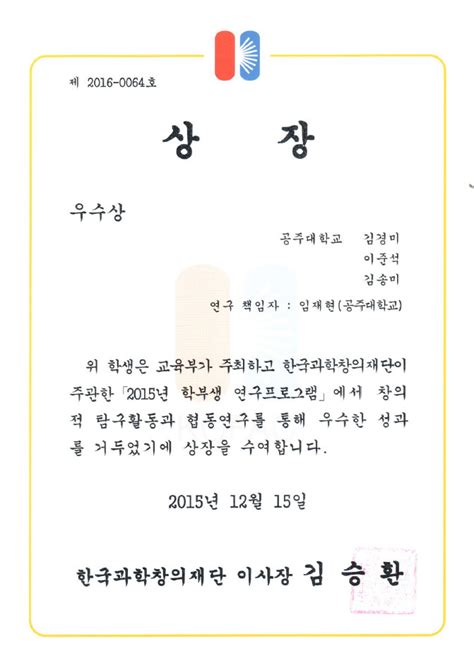 제 2016-0064호
상 장
우수상
공주대학교 김경미
이준석
김송미
연구 책임자 : 임재현(공주대학교)
위 학생은 교육부가 주최하고 한국과학창의재단이
주관한 「2015년 학부생 연구프로그램」에서 창의
적 탐구활동과 협동연구를 통해 우수한 성과
를 거두었기에 상장을 수여합니다.
2015년 12월 15일
한국과학창의재단 이사장 김 승 환